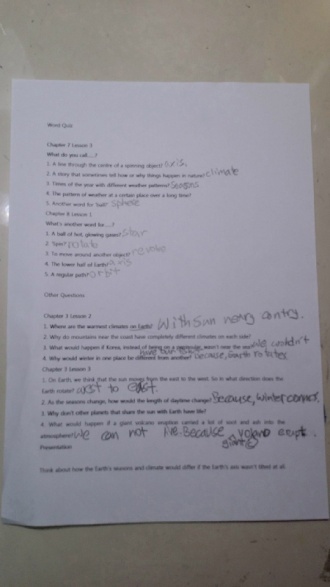 Word Quiz
Chapter 7 Lesson 3
What do you call....?
1. A line through the centre of a spinning object? axis
2. A story that sometimes tell how or why things happen in nature? climate
3. Times of the year with different weather patterns? Seasons
4. The pattern of weather at a certain place over a long time?
5. Another word for 'ball' sphere
Chapter 8 Lesson 1
What's another word for....?
1. A ball of hot, glowing gases? star
2. Spin?
3. To move around another object? revolve
4. The lower half of Earth?
5. A regular path? orbit
Other Questions:
Chapter 3 Lesson 2
1. Where are the warmest climates on Earth? With Sun contry.
2. Why do mountains near the coast have completely different climates on each side?
3. What would happen if Korea, instead of being on a was near the We couldn't
4. Why would winter in one place be different from another? because, Earth rotates
Chapter 3 Lesson 3
1. On Earth, we think that the sun moves from the east to the west. So in what direction does the
Earth rotate? to East.
2. As the seasons change, how would the length of daytime change? Because, Winter
3. Why don't other planets that share the sun with Earth have life?
4. What would happen if a giant volcano eruption carried a lot of soot and ash into the
atmosphere? We can not live. Because volcano
Presentation
Think about how the Earth's seasons and climate would differ if the Earth's axis wasn't tilted at all.